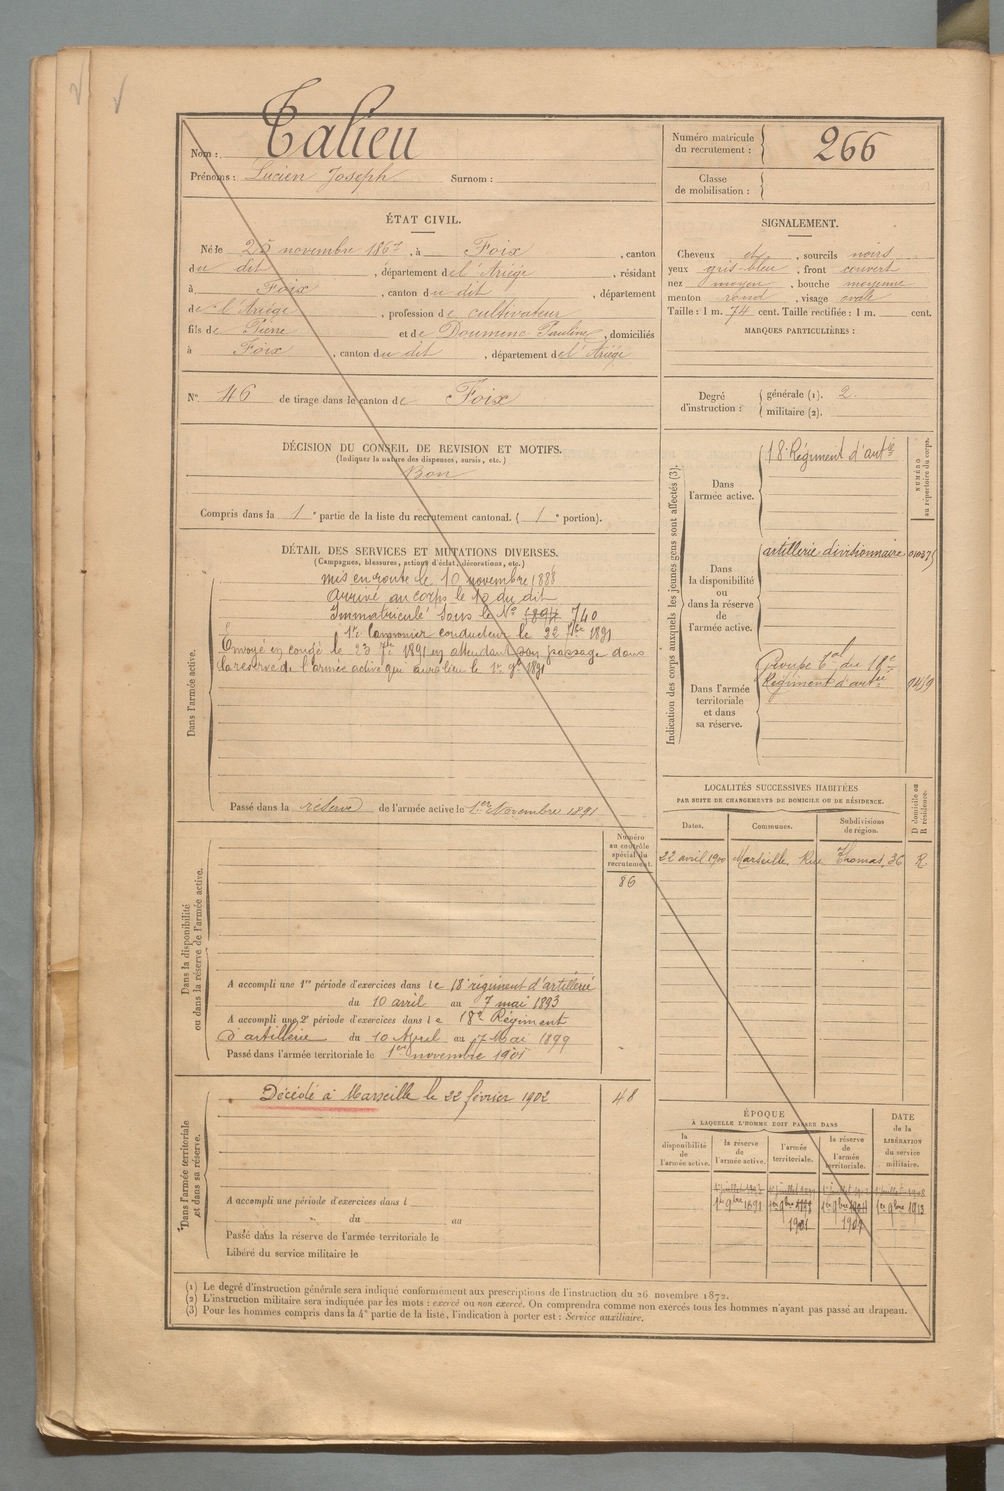 Nom : Talieu
Prénoms : Lucien Joseph Surnom :
Numéro matricule du recrutement : 266
Classe de mobilisation :
ÉTAT CIVIL.
Né le 25 novembre 1867, à Foix, canton
du dit, département de l'Ariége, résidant
à Foix, canton du dit, département
de l'Ariége, profession de cultivateur
fils de Pierre et de Doumenc Pauline, domiciliés
à Foix, canton du dit, département de l'Ariége
SIGNALEMENT.
Cheveux et, sourcils noirs
yeux gris-bleu, front couvert
nez moyen, bouche moyenne
menton rond, visage ovale
Taille : 1 m. 74 cent. Taille rectifiée : 1 m. cent.
MARQUES PARTICULIÈRES :
N° 46 de tirage dans le canton de Foix
Degré d'instruction : générale (1). 2.
militaire (2).
DÉCISION DU CONSEIL DE REVISION ET MOTIFS.
(Indiquer la nature des dispenses, sursis, etc.)
Bon
Compris dans la 1e partie de la liste du recrutement cantonal. ( 1e portion).
DÉTAIL DES SERVICES ET MUTATIONS DIVERSES.
(Campagnes, blessures, actions d'éclat, décorations, etc.)
Dans l'armée active.
mis en route le 10 novembre 1888
Arrivé au corps le 10 du dit
Immatriculé sous le N° 740
1er Canonnier conducteur le 22 7bre 1891
Envoyé en congé le 23 7bre 1891 en attendant son passage dans
la reserve de l'armée active qui aura lieu le 1er 9bre 1891
Passé dans la réserve de l'armée active le 1er Novembre 1891
Indication des corps auxquels les jeunes gens sont affectés (3).
NUMÉRO au répertoire du corps.
Dans l'armée active.
18e Régiment d'artie
Dans la disponibilité ou dans la réserve de l'armée active.
artillerie divisionnaire
Dans l'armée territoriale et dans sa réserve.
Groupe tal du 18e
Régiment d'artie
LOCALITÉS SUCCESSIVES HABITÉES
PAR SUITE DE CHANGEMENTS DE DOMICILE OU DE RÉSIDENCE.
Dates. Communes. Subdivisions de région. D domicile ou R résidence.
22 avril 1900 Marseille. Rue Thomas, 36 R
Numéro au contrôle spécial du recrutement.
86
Dans la disponibilité ou dans la réserve de l'armée active.
A accompli une 1re période d'exercices dans le 18e régiment d'artillerie
du 10 avril au 7 mai 1893
A accompli une 2e période d'exercices dans le 18e Régiment
d'artillerie du 10 April au 7 Mai 1899
Passé dans l'armée territoriale le 1er novembre 1901
Dans l'armée territoriale et dans sa réserve.
Décédé à Marseille le 22 février 1902 48
A accompli une période d'exercices dans l
du au
Passé dans la réserve de l'armée territoriale le
Libéré du service militaire le
ÉPOQUE
À LAQUELLE L'HOMME DOIT PASSER DANS
la disponibilité de l'armée active. la réserve de l'armée active. l'armée territoriale. la réserve de l'armée territoriale. DATE de la LIBÉRATION du service militaire.
1er 9bre 1891 1er 9bre 1er 9bre 1er 9bre 1913
1901 1907
(1) Le degré d'instruction générale sera indiqué conformément aux prescriptions de l'instruction du 26 novembre 1872.
(2) L'instruction militaire sera indiquée par les mots : exercé ou non exercé. On comprendra comme non exercés tous les hommes n'ayant pas passé au drapeau.
(3) Pour les hommes compris dans la 4e partie de la liste, l'indication à porter est : Service auxiliaire.